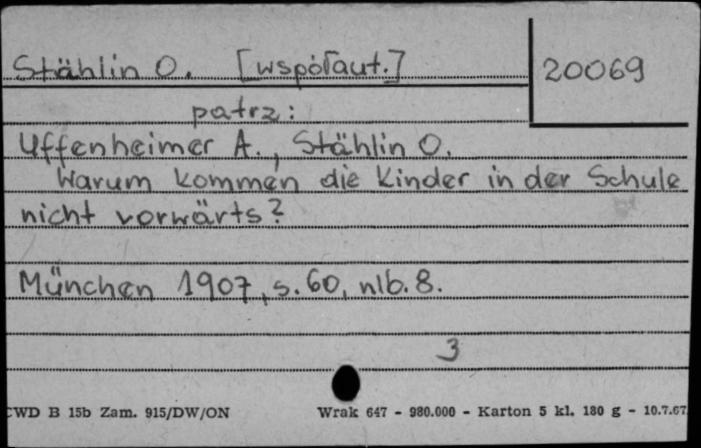 Stählin O. [współaut.]
20069
patrz:
Uffenheimer A., Stählin O.
Warum kommen die Kinder in der Schule
nicht vorwärts?
München 1907, s. 60, nlb. 8.
3
CWD B 15b Zam. 915/DW/ON
Wrak 647 - 980.000 - Karton 5 kl. 180 g - 10.7.67